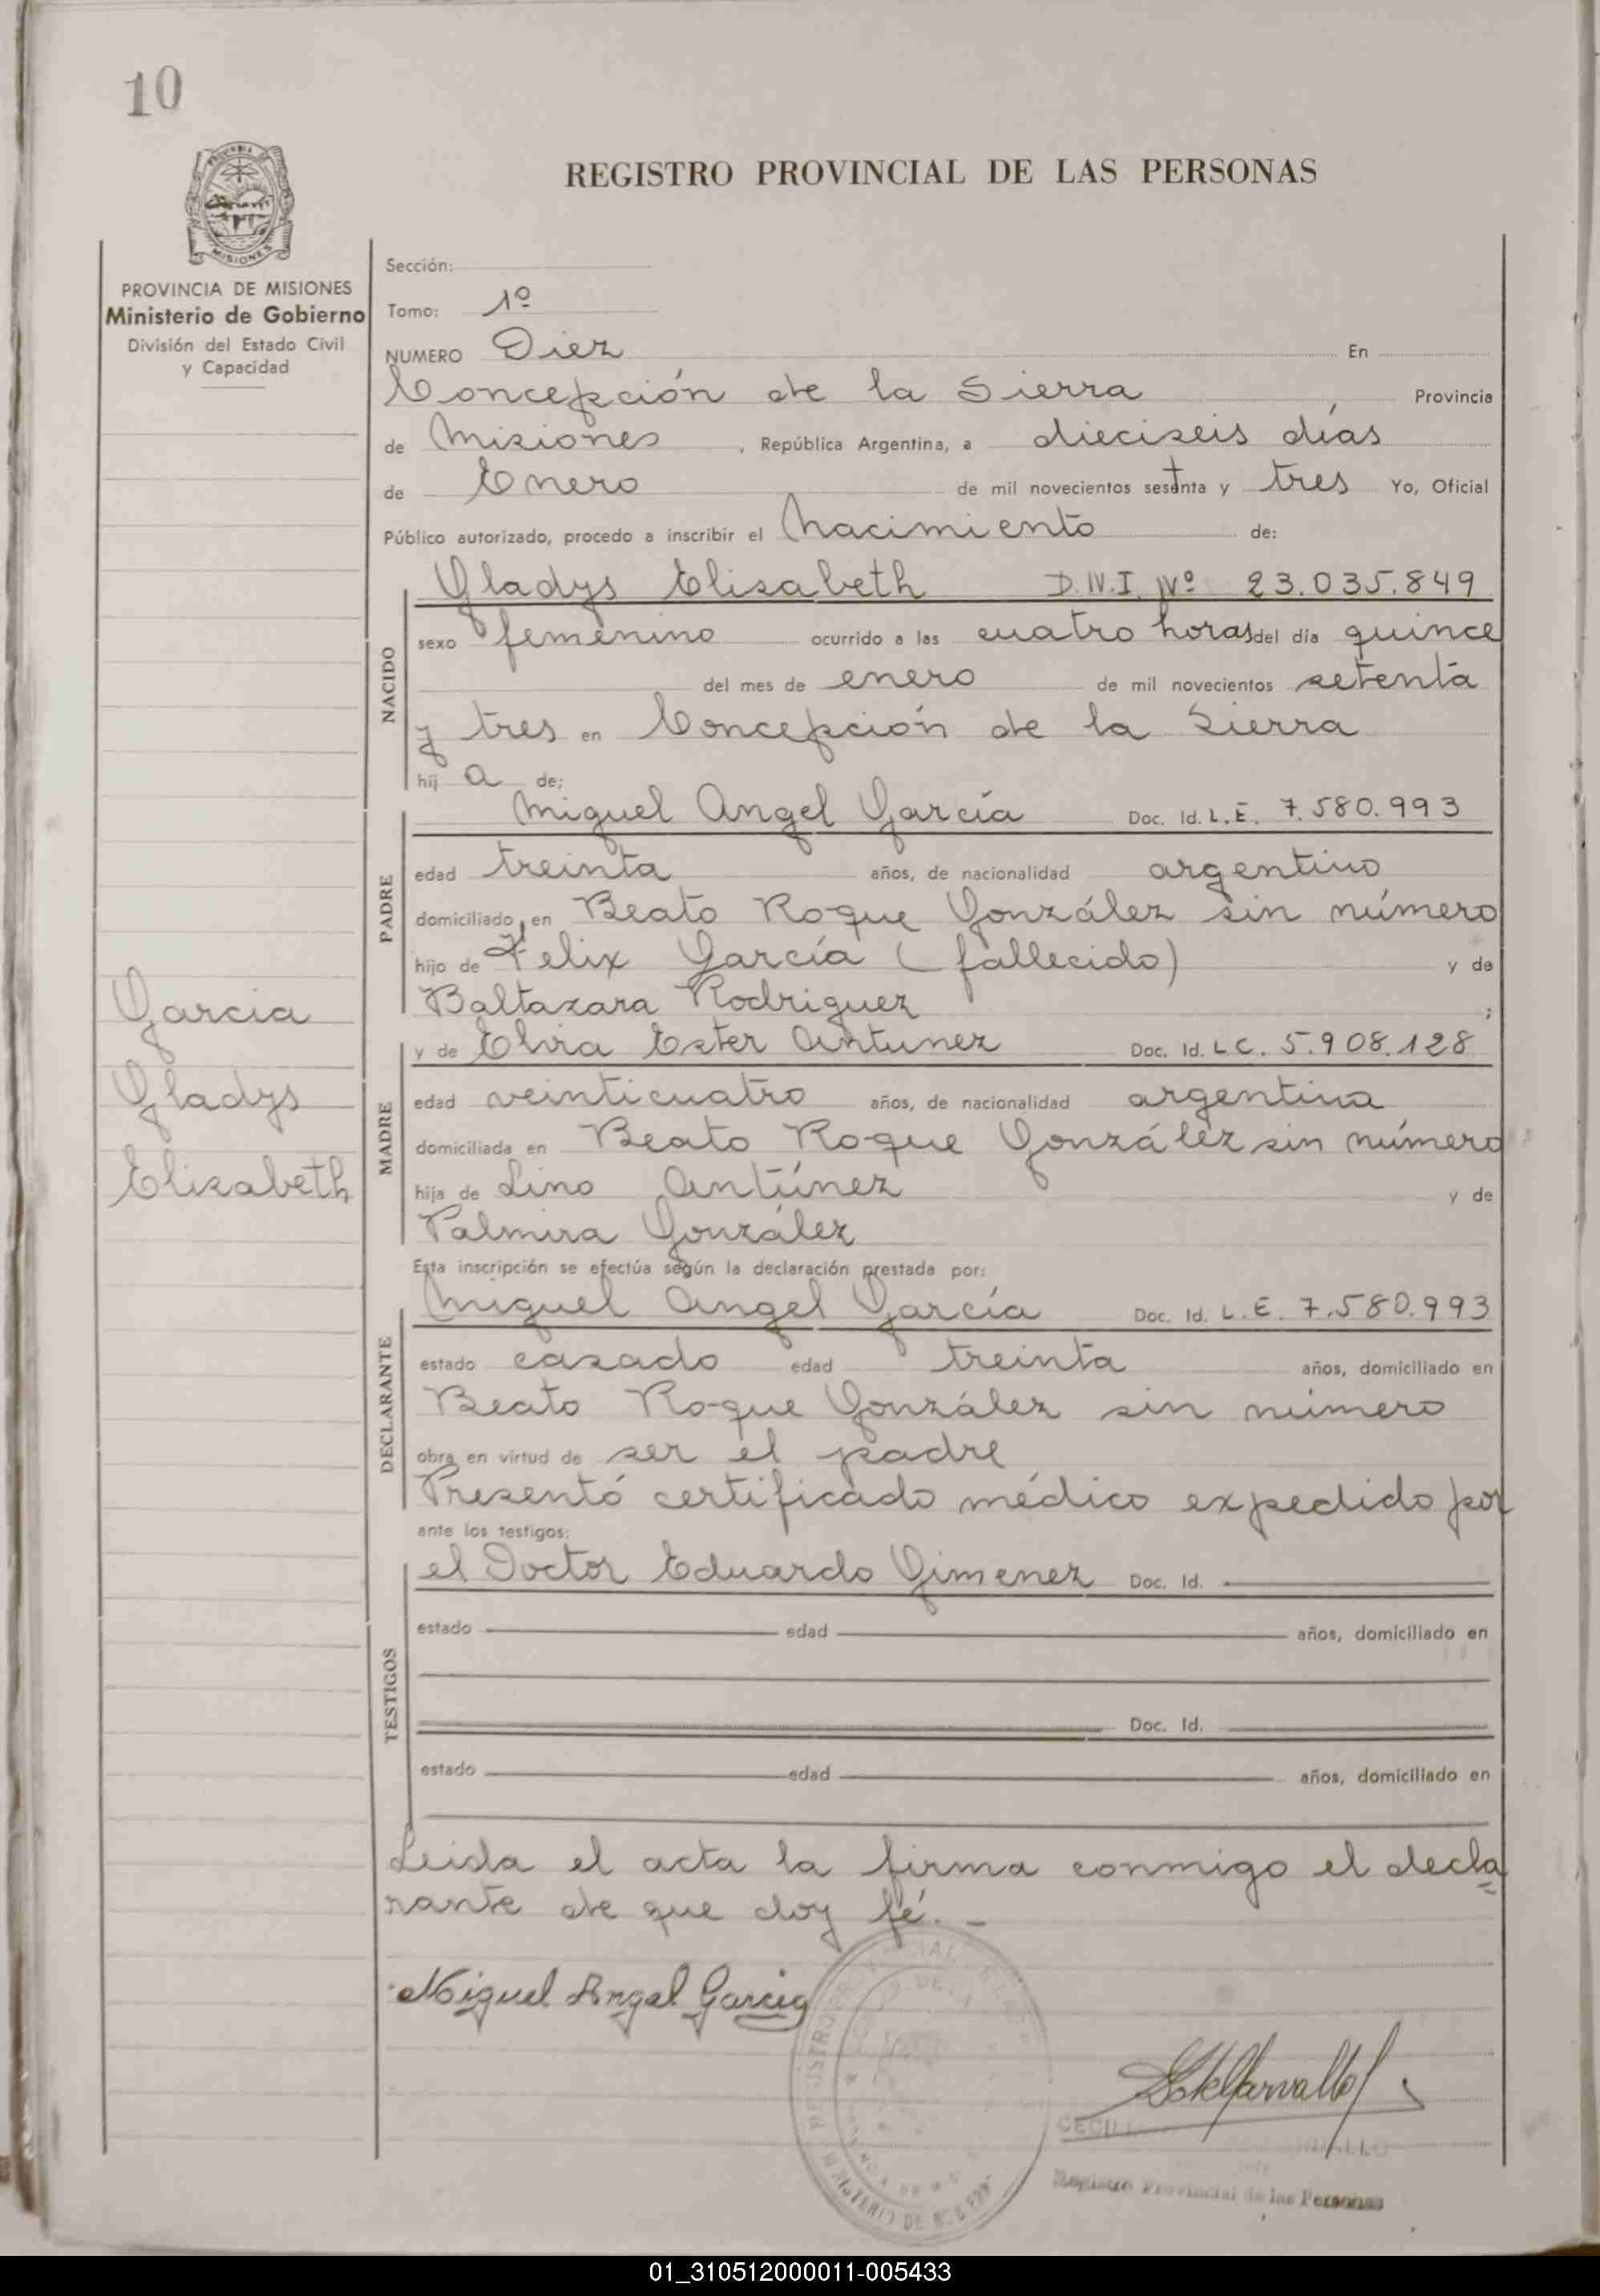 10
REGISTRO PROVINCIAL DE LAS PERSONAS
PROVINCIA DE MISIONES
MISIONES
PROVINCIA DE MISIONES
Ministerio de Gobierno
División del Estado Civil
y Capacidad
Sección:
Tomo: 1º
NUMERO Diez En
Concepción de la Sierra Provincia
de Misiones, República Argentina, a dieciseis días
de Enero de mil novecientos setenta y tres Yo, Oficial
Público autorizado, procedo a inscribir el Nacimiento de:
NACIDO
Gladys Elisabeth D.N.I. Nº 23.035.849
sexo femenino ocurrido a las cuatro horas del día quince
del mes de enero de mil novecientos setenta
y tres en Concepción de la Sierra
hij a de;
PADRE
Miguel Angel García Doc. Id. L.E. 7.580.993
edad treinta años, de nacionalidad argentino
domiciliado en Beato Roque González sin número
hijo de Felix García (fallecido) y de
Baltazara Rodriguez ;
MADRE
y de Elvira Ester Antunez Doc. Id. L C. 5.908.128
edad veinticuatro años, de nacionalidad argentina
domiciliada en Beato Roque González sin número
hija de Lino Antúnez y de
Palmira González
Esta inscripción se efectúa según la declaración prestada por:
DECLARANTE
Miguel Angel García Doc. Id. L.E. 7.580.993
estado casado edad treinta años, domiciliado en
Beato Roque González sin número
obra en virtud de ser el padre
Presentó certificado médico expedido por
ante los testigos:
TESTIGOS
el Doctor Eduardo Gimenez Doc. Id.
estado edad años, domiciliado en
Doc. Id.
estado edad años, domiciliado en
Leida el acta la firma conmigo el decla
rante de que doy fé.-
Garcia
Gladys
Elisabeth
Miguel Angel Garcia
Registro Provincial de las Personas
01_310512000011-005433